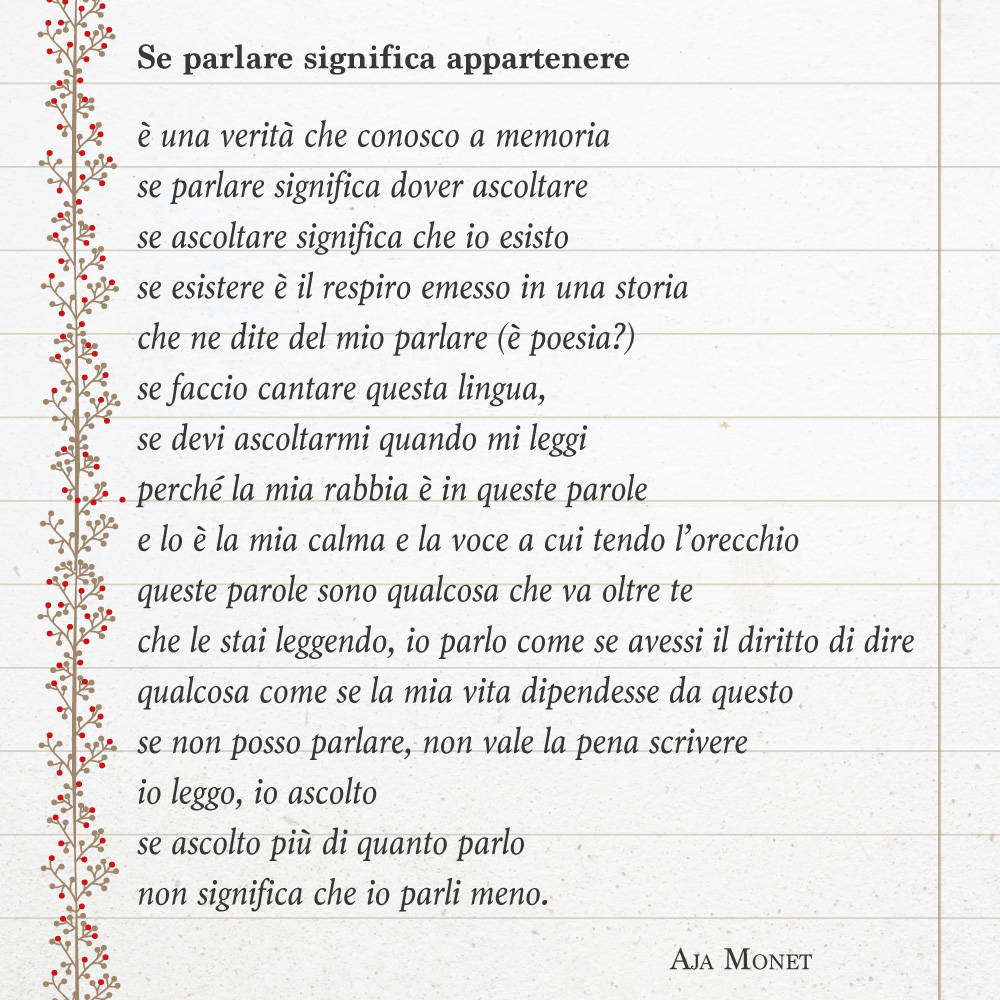 Se parlare significa appartenere
è una verità che conosco a memoria
se parlare significa dover ascoltare
se ascoltare significa che io esisto
se esistere è il respiro emesso in una storia
che ne dite del mio parlare (è poesia?)
se faccio cantare questa lingua,
se devi ascoltarmi quando mi leggi
perché la mia rabbia è in queste parole
e lo è la mia calma e la voce a cui tendo l’orecchio
queste parole sono qualcosa che va oltre te
che le stai leggendo, io parlo come se avessi il diritto di dire
qualcosa come se la mia vita dipendesse da questo
se non posso parlare, non vale la pena scrivere
io leggo, io ascolto
se ascolto più di quanto parlo
non significa che io parli meno.
Aja Monet